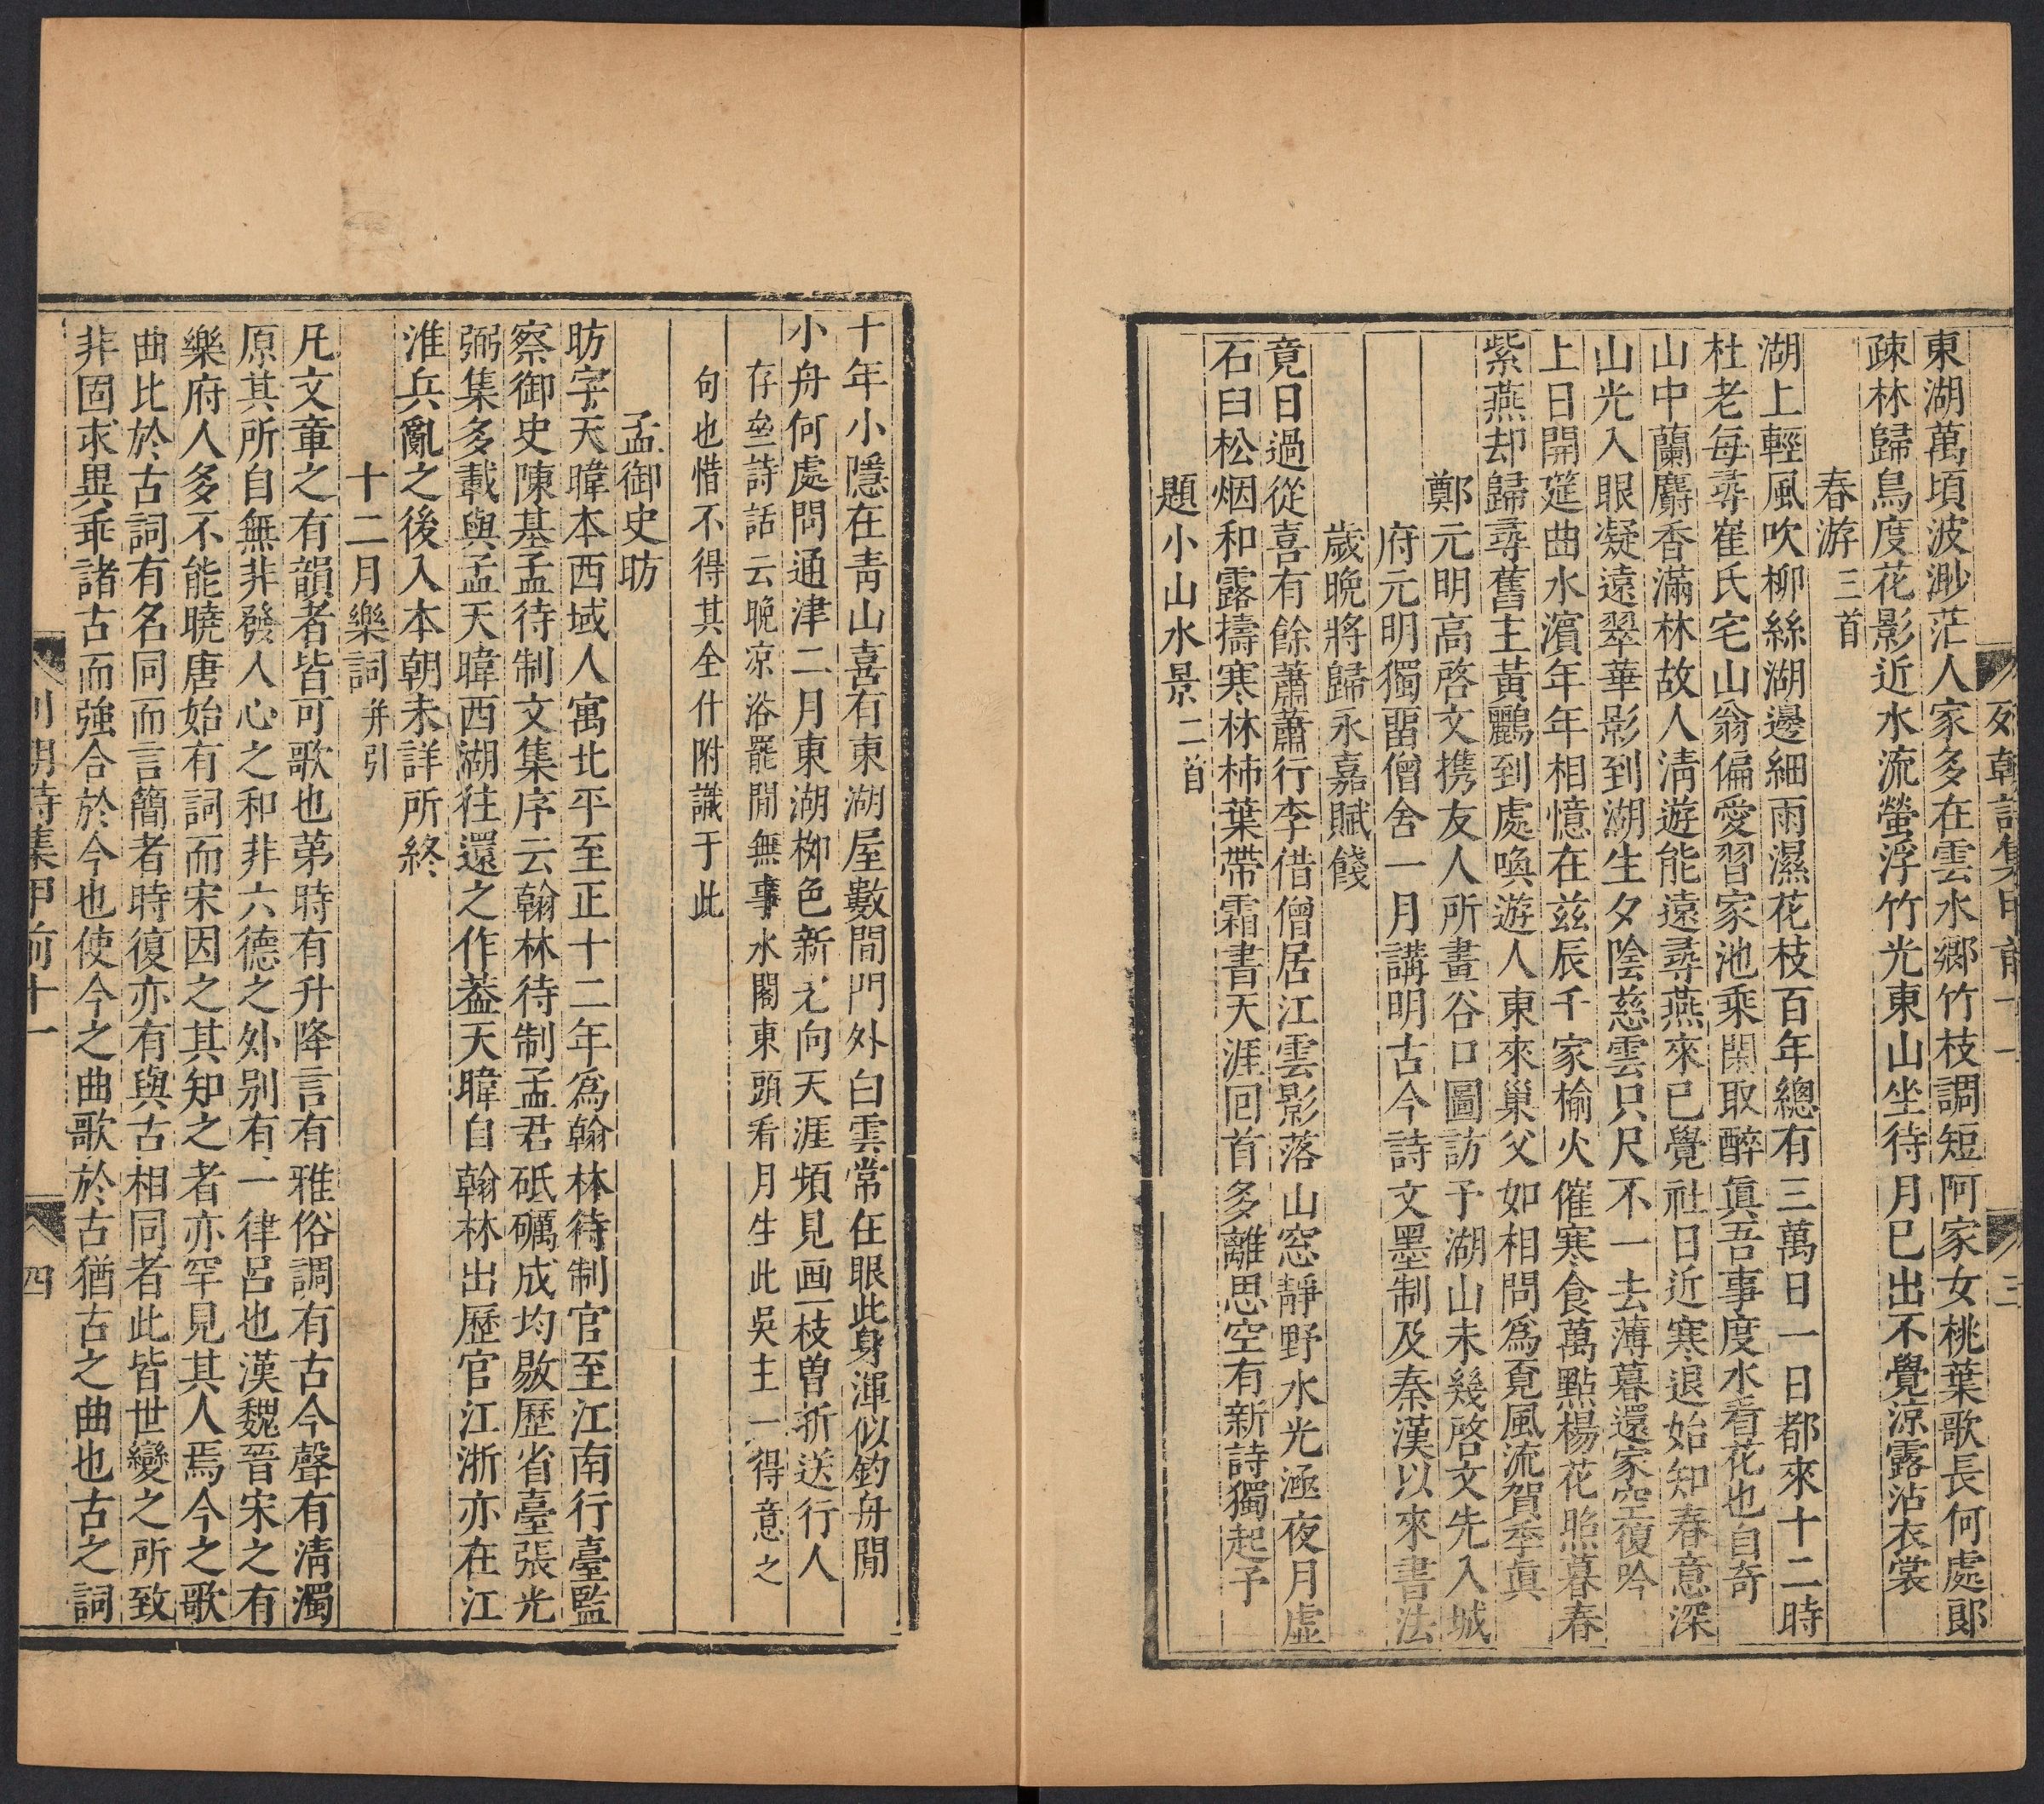 列朝詩集甲前十一 三
東湖萬頃波渺茫人家多在雲水鄉竹枝調短阿家女桃葉歌長何處郎
疎林歸鳥度花影近水流螢浮竹光東山坐待月巳出不覺涼露沾衣裳
春游三首
湖上輕風吹柳絲湖邊細雨濕花枝百年總有三萬日一日都來十二時
杜老每尋崔氏宅山翁偏愛習家池乘閑取醉眞吾事度水看花也自奇
山中蘭麝香滿林故人淸遊能遠尋燕來已覺社日近寒退始知春意深
山光入眼凝遠翠華影到湖生夕陰慈雲只尺不一去薄暮還家空復吟
上日開筵曲水濵年年相憶在兹辰千家榆火催寒食萬點楊花照暮春
紫燕却歸尋舊主黃鸝到處喚遊人東來巢父如相問爲覔風流賀季眞
鄭元明高啓文携友人所畫谷口圖訪予湖山未幾啓文先入城
府元明獨畱僧舍一月講明古今詩文墨制及秦漢以來書法
歲晩將歸永嘉賦餞
竟日過從喜有餘蕭蕭行李借僧居江雲影落山窓靜野水光涵夜月虛
石臼松烟和露擣寒林柿葉帶霜書天涯回首多離思空有新詩獨起予
題小山水景二首
十年小隱在靑山喜有東湖屋數間門外白雲常在眼此身渾似釣舟閒
小舟何處問通津二月東湖栁色新○向天涯頻見画一枝曾折送行人
存埜詩話云晩凉浴罷閒無事水閣東頭看月生此吳主一得意之
句也惜不得其全什附識于此
孟御史昉
昉字天暐本西域人寓北平至正十二年爲翰林待制官至江南行臺監
察御史陳基孟待制文集序云翰林待制孟君砥礪成均敭歷省臺張光
弼集多載與孟天暐西湖往還之作葢天暐自翰林出歷官江浙亦在江
淮兵亂之後入本朝未詳所終
十二月樂詞并引
凡文章之有韻者皆可歌也第時有升降言有雅俗調有古今聲有淸濁
原其所自無非發人心之和非六德之外别有一律呂也漢魏晉宋之有
樂府人多不能曉唐始有詞而宋因之其知之者亦罕見其人焉今之歌
曲比於古詞有名同而言簡者時復亦有與古相同者此皆世變之所致
非固求異乖諸古而強合於今也使今之曲歌於古猶古之曲也古之詞
列朝詩集甲前十一 四